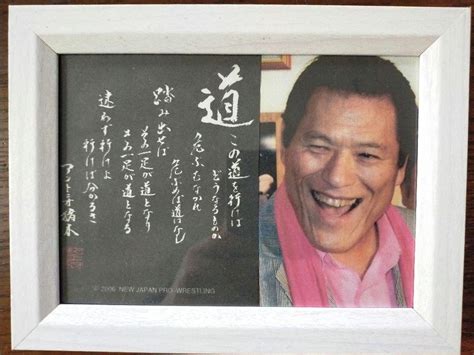 道
この道を行けば
どうなるものか
危ぶむなかれ
危ぶめば道はなし
踏み出せば
その一足が道となり
その一足が道となる
迷わず行けよ
行けば分かるさ
アントニオ猪木
© 2006 NEW JAPAN PRO-WRESTLING